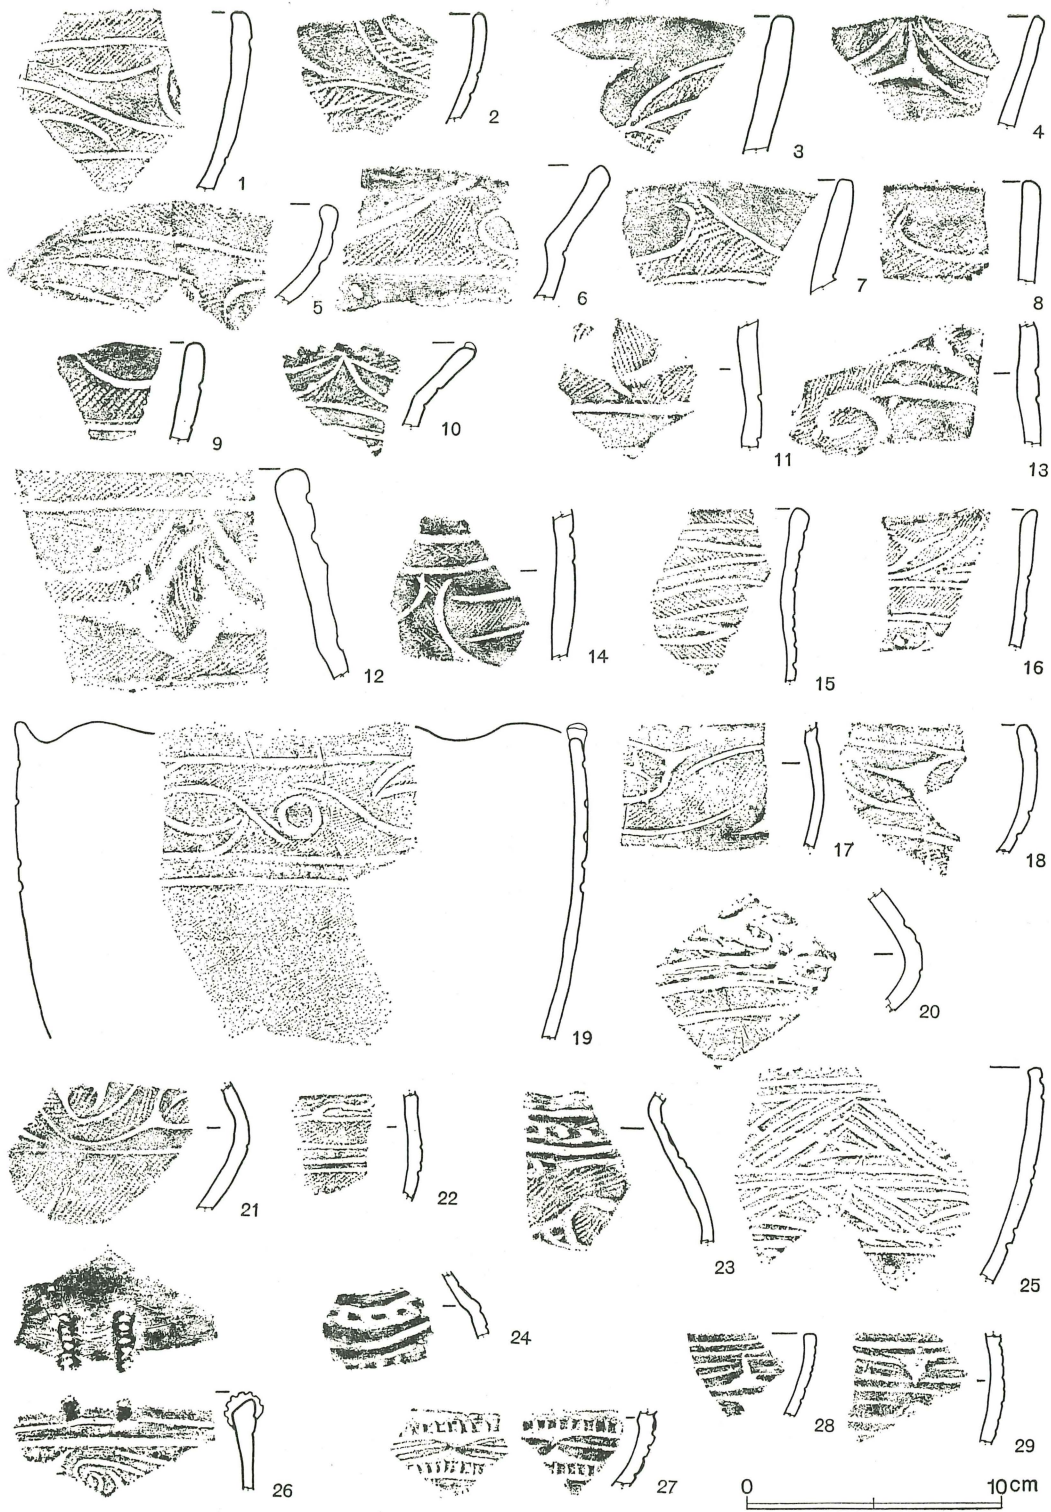 1 2 3 4
5 6 7 8
9 10 11 13
12 14 15 16
19 17 18
20
21 22 23 25
24
26 27 28 29
0 10cm